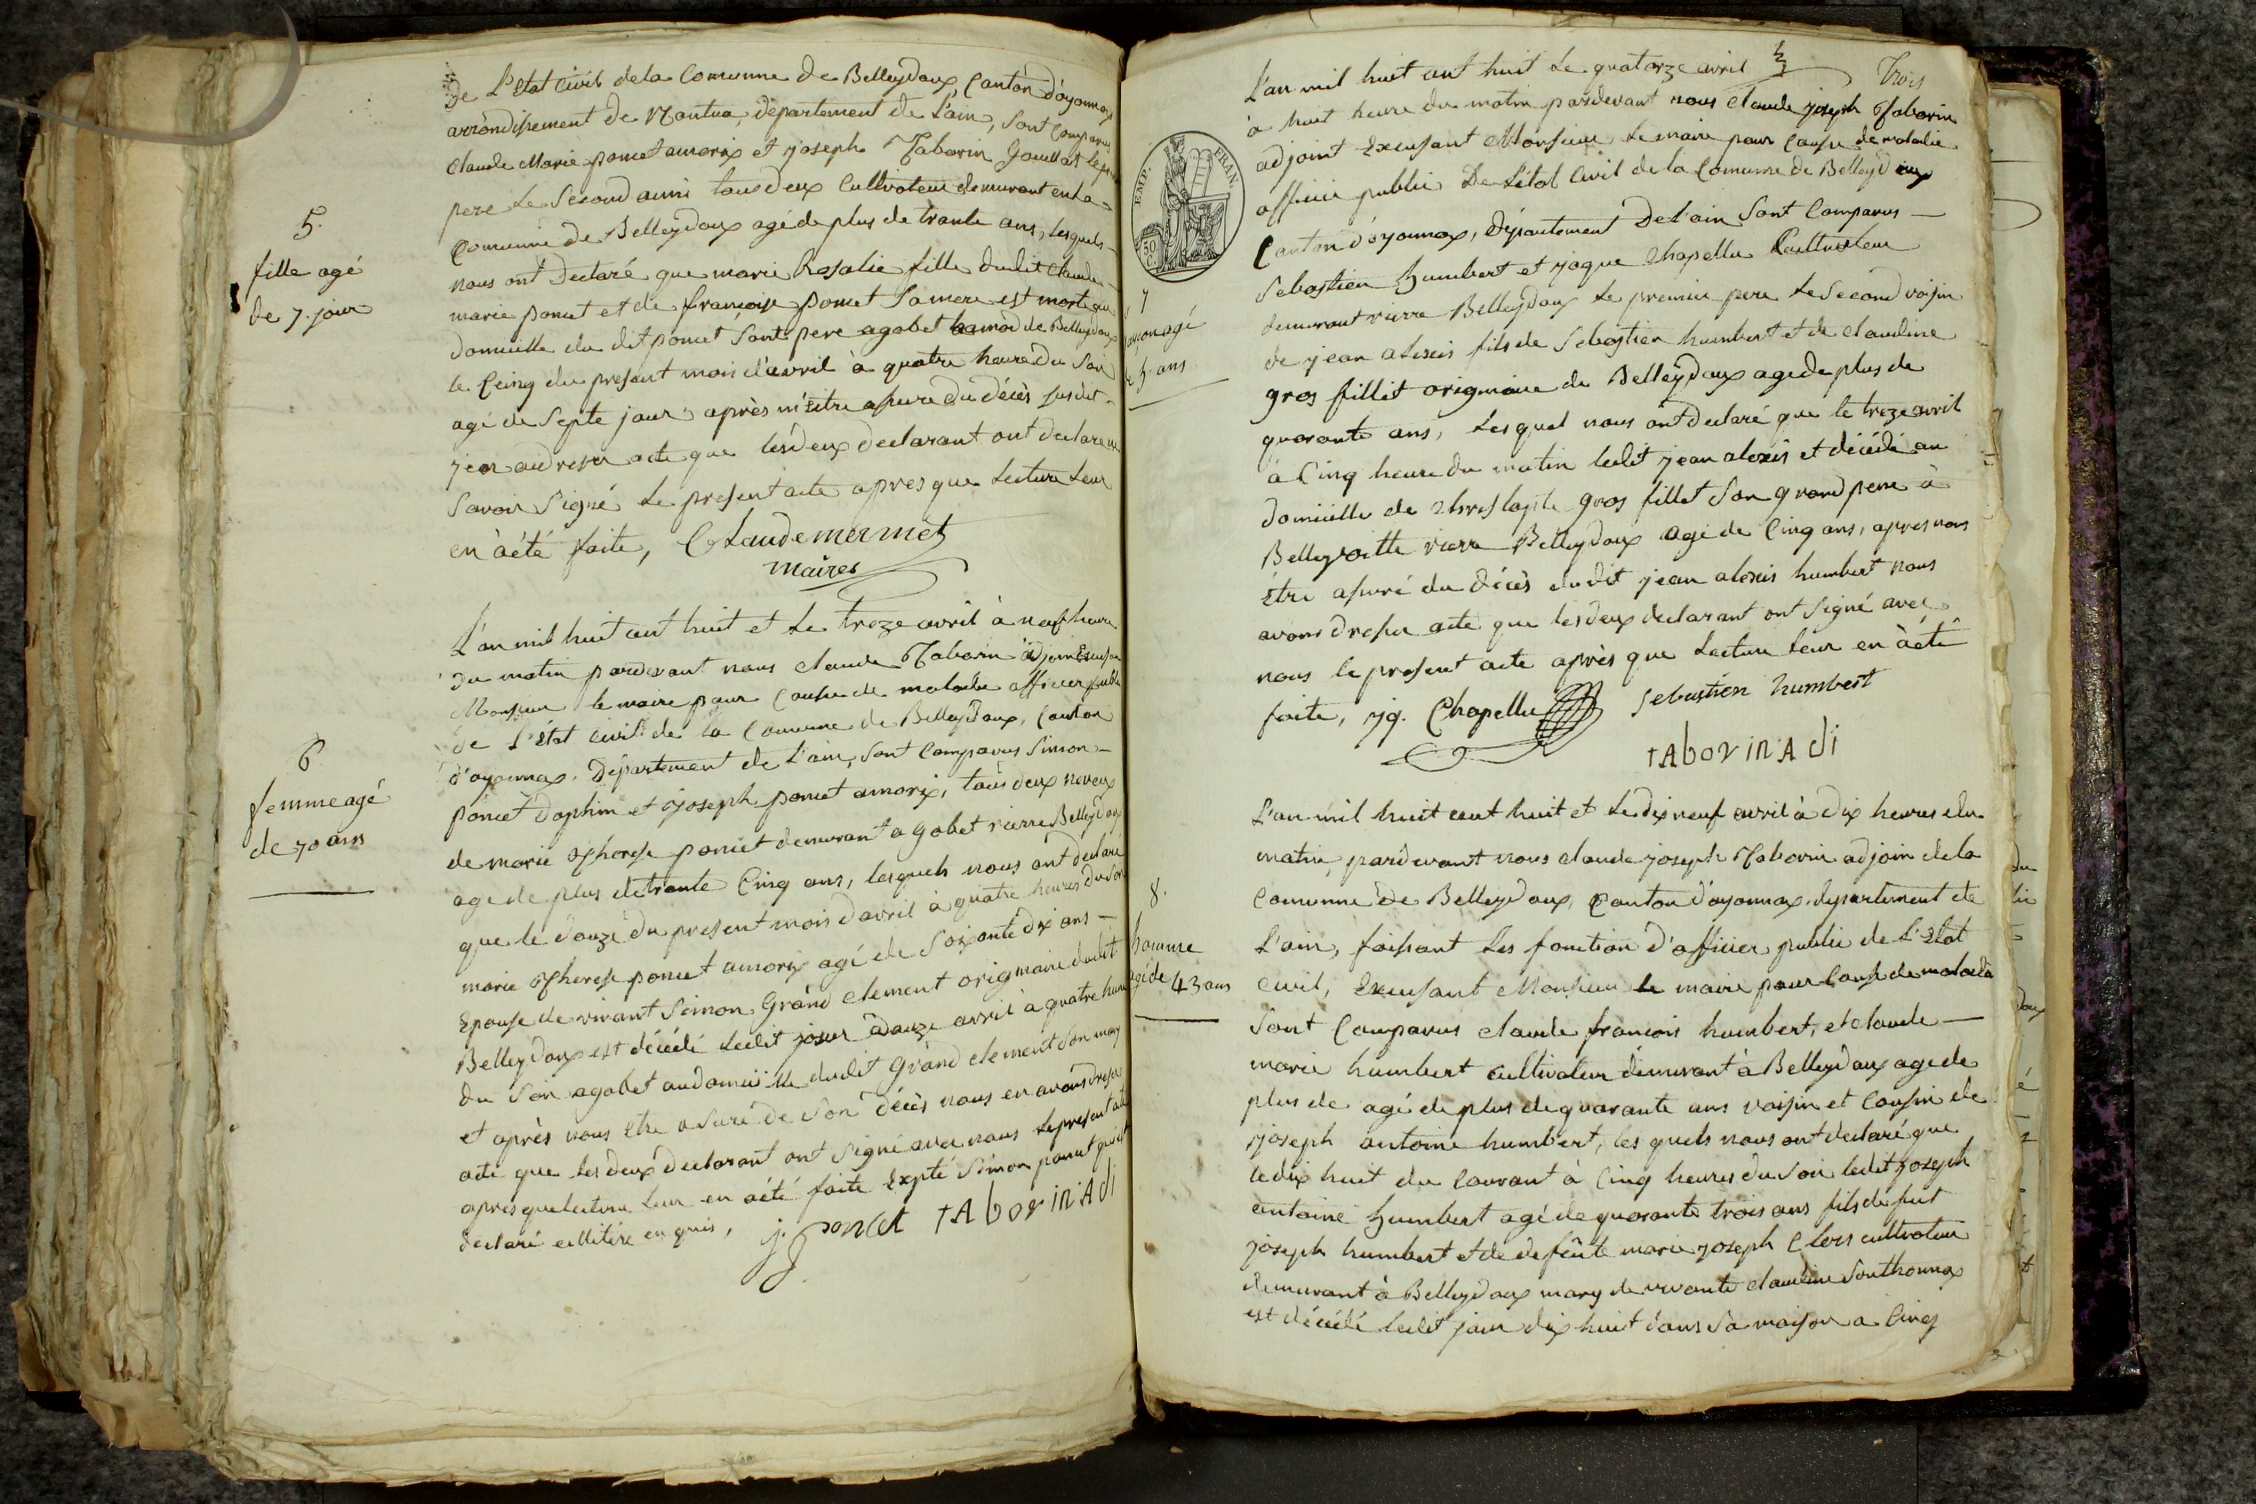 De L'Etat Civil dela Comunne de Belleydoux, Canton d'oyonnax
arrondissement de Nantua, departement de L'ain, sont Comparus
Claude Marie poncet amorix et joseph Taborin Gouillat le
pere Le Second ami tous deux Cultivateur demurant en la
Comunne de Belleydoux agé de plus de trante ans, lesquels
nous ont Declaré que marie Rosalie fille dudit Claude
marie poncet et de françoise poncet Sa mere est morte au
Domicille du dit poncet Sont pere agobet hamod de Belleydoux
le Ceinq du present mois d'avril à quatre heure du Soir
agé de Septe jour après m'Ettre assuré du décès susdit
jean aid resser acte que lesdeux declarant ont declaré ne
Savoir Signé Le present acte apres que Lecture Leur
en à été faite, Claude mermet
maire
5.
fille agé
de 7. jour
L'an mil huit cent huit et Le treze avril à neuf heure
Du matin pardevant nous claude Taborin adjoin Excusan
Monsieur le maire pour Cause de maladie officier public
de L'état Civil de la Comunne de Belleydoux, Canton
d'oyonnax. Département de L'ain, sont Comparus Simon
poncet Dophin et joseph poncet amorix, tous deux neveux
de marie Therese poncet demurant a Gobet rierre Belleydoux
age de plus detrante Cinq ans, lesquels nous ont declaré
que le douze du present mois d'avril à quatre heures du Soir
marie Therese poncet amorix agé de Soixante dix ans
Epouse de vivant Simon Grand clement originaire dudit
Belleydoux est décédé ledit jour douze avril à quatre heure
du Soir agobet audomicille dudit Grand clement Son mary
et après nous Etre assuré de Son décès nous en avons dresser
acte que les deux declarant ont Signé avec nous Le present acte
apres que lecture Leur en à été faite Expté Simon poncet qui à
declaré enquis, j. poncet tAborin Adj
6
femme agé
de 70 ans
Trois
L'an mil huit cent huit Le quatorze avril
à huit heure du matin pardevant nous claude joseph Taborin
adjoint Excusant Monsieur Le maire pour Cause de maladie
officier public De L'état Civil de la Comunne de Belleydoux
Canton d'oyonnax, Département De L'ain Sont Comparus
Sebastien humbert et jaque Chapellu Cultivateur
demurant rierre Belleydoux Le premier pere Le Second voisin
de jean alexis fils de Sebastien humbert et de claudine
gros fillit originaire de Belleydoux age de plus de
quarante ans, Lesquel nous ont declaré que le treze avril
à Cinq heure du matin ledit jean alexis et décédé au
domicille de gros fillet Son grand pere à
Belleyvoitte rierre Belleydoux agé de Cinq ans, apres nous
Etre assuré du décès dudit jean alexis humbert nous
avons dresser acte que lesdeux declarant ont Signé avec
nous le present acte après que Lecture Leur en à été
faite, jq. Chapellu Sebastien humbert
tAborin Adj
EMP. FRAN.
50 C.
7
garçon agé
de 5 ans
L'an mil huit cent huit et Le dix neuf avril à Dix heures du
matin, pardevant nous claude joseph Taborin adjoin dela
Comunne de Belleydoux, Canton d'oyonnax. departement de
L'ain, faissant Les fonction d'officier public de L'Etat
civil, Excusant Monsieur le maire pour Cause de maladie
Sont Comparus claude francois humbert, et claude
marie humbert cultivateur demurant à Belleydoux age de
plus de agé de plus de quarante ans voisin et Cousin de
joseph antoine humbert, lesquels nous ont declaré que
ledix huit du Courant à Cinq heures du Soir ledit joseph
antoine humbert agé de quarante trois ans fils de fut
joseph humbert et de defeinte marie joseph Clers cultivateur
demurant à Belleydoux mary de vivante claudine Southonnax
est décédé ledit jour dix huit dans Sa maison a Cinq
8.
homme
agé de 43 ans